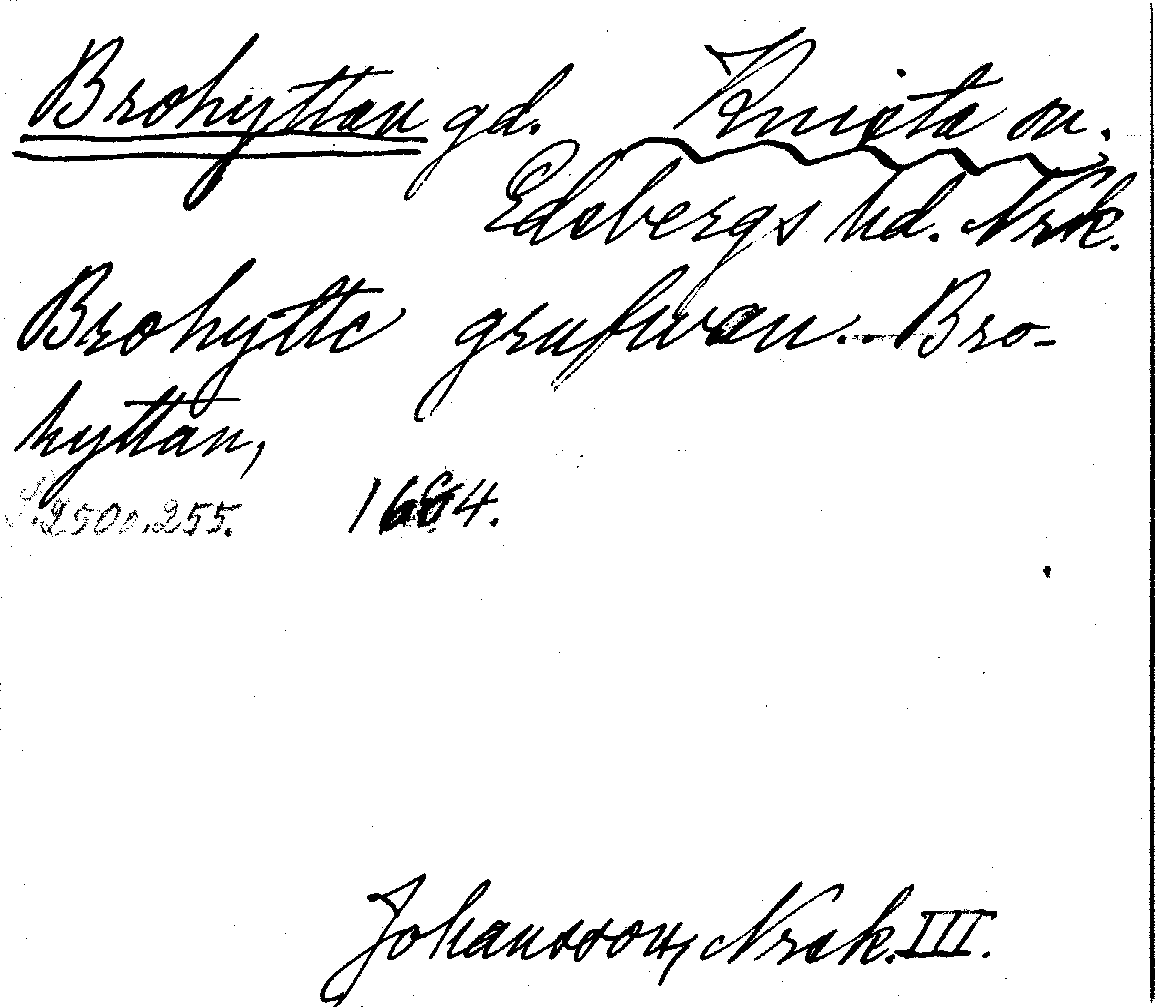 Brohyttan gd. Knista sn.
Edsbergs hd. Nrk.
Brohytte grufwan. Bro-
hyttan,
S. 250 o. 255. 1664.
Johansson, Nrk. III.